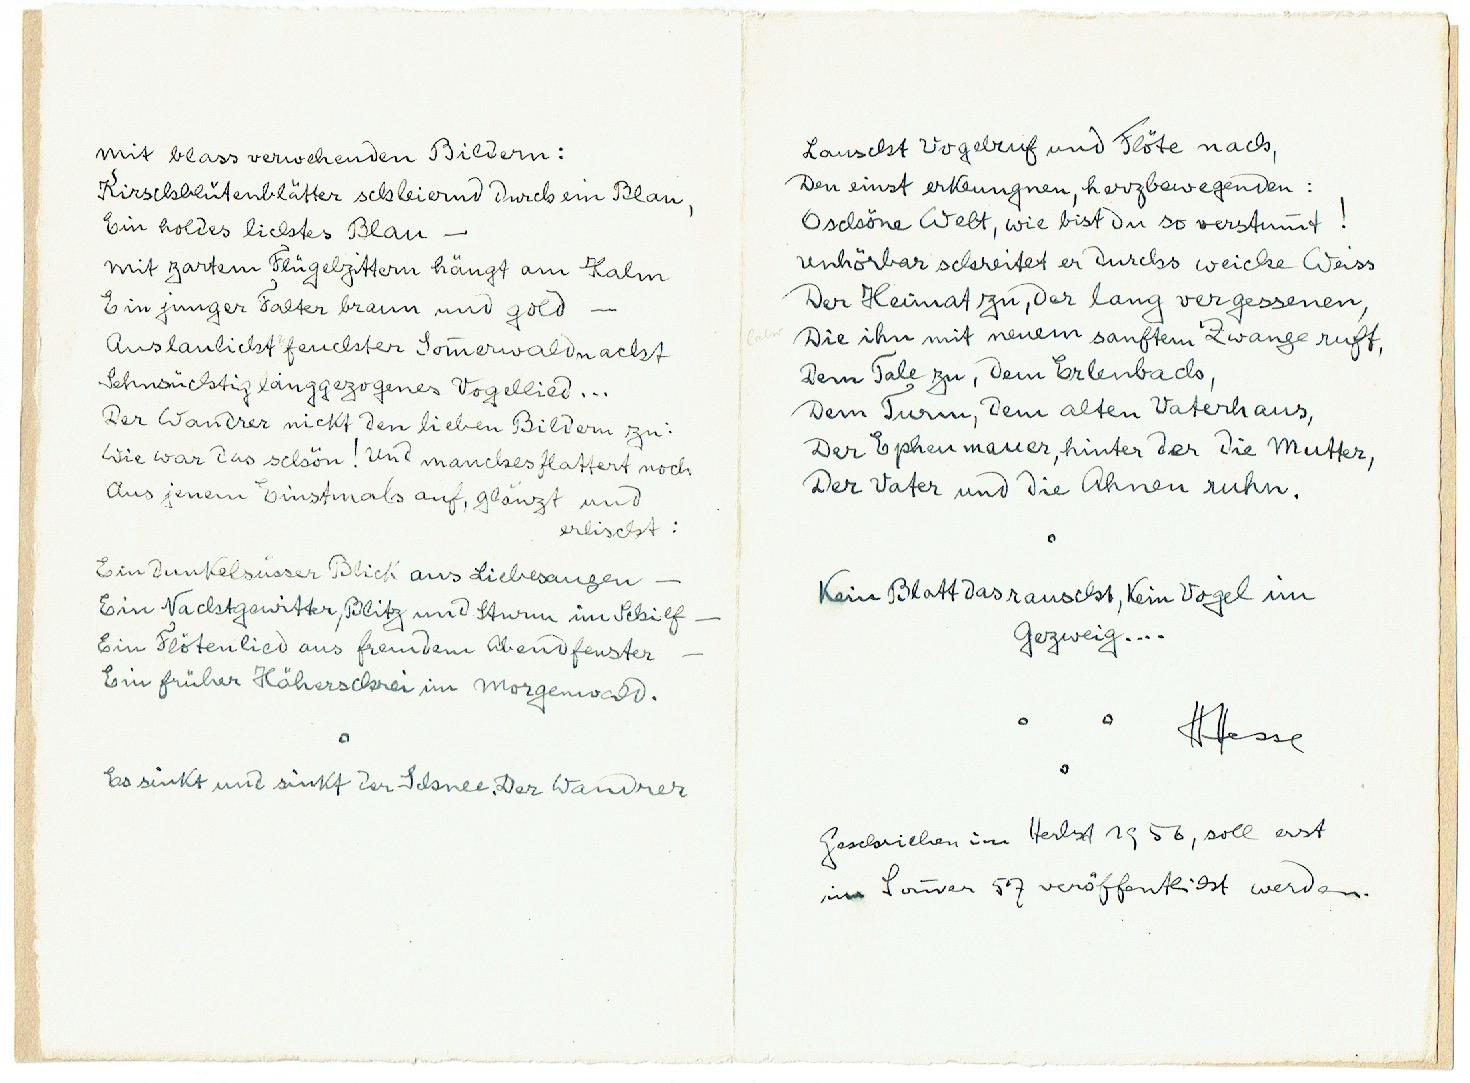 mit blass verwehenden Bildern:
Kirschblütenblätter schleiernd durch ein Blau,
Ein holdes lichtes Blau —
Mit zartem Flügelzittern hängt am Halm
Ein junger Falter braun und gold —
Aus laulicht feuchter Som̄erwaldnacht
Sehnsüchtig langgezogenes Vogellied...
Der Wandrer nickt den lieben Bildern zu:
Wie war das schön! Und manches flattert noch
Aus jenem Einstmals auf, glänzt und
erlischt:
Ein dunkelsüsser Blick aus Liebesaugen —
Ein Nachtgewitter, Blitz und Sturm im Schilf —
Ein Flötenlied aus fremdem Abendfenster —
Ein früher Häherschrei im Morgenwald.
Es sinkt und sinkt der Schnee. Der Wandrer
Lauscht Vogelruf und Flöte nach,
Den einst erklungnen, herzbewegenden:
O schöne Welt, wie bist du so verstum̄t!
Unhörbar schreitet er durchs weiche Weiss
Der Heimat zu, der lang vergessenen,
Die ihn mit neuem sanftem Zwange ruft,
Dem Tale zu, dem Erlenbach,
Dem Turm, dem alten Vaterhaus,
Der Epheumauer, hinter der die Mutter,
Der Vater und die Ahnen ruhn.
Kein Blatt das rauscht, kein Vogel im
Gezweig....
HHesse
Geschrieben im Herbst 1956, soll erst
im Som̄er 57 veröffentlicht werden.